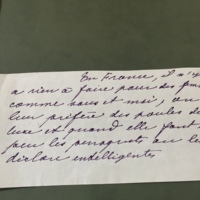 En France, il n'y
a rien à faire pour des
comme vous et moi, on
leur préfère des poules de
luxe et quand elle font
peu les perroquets on les
déclare intelligentes